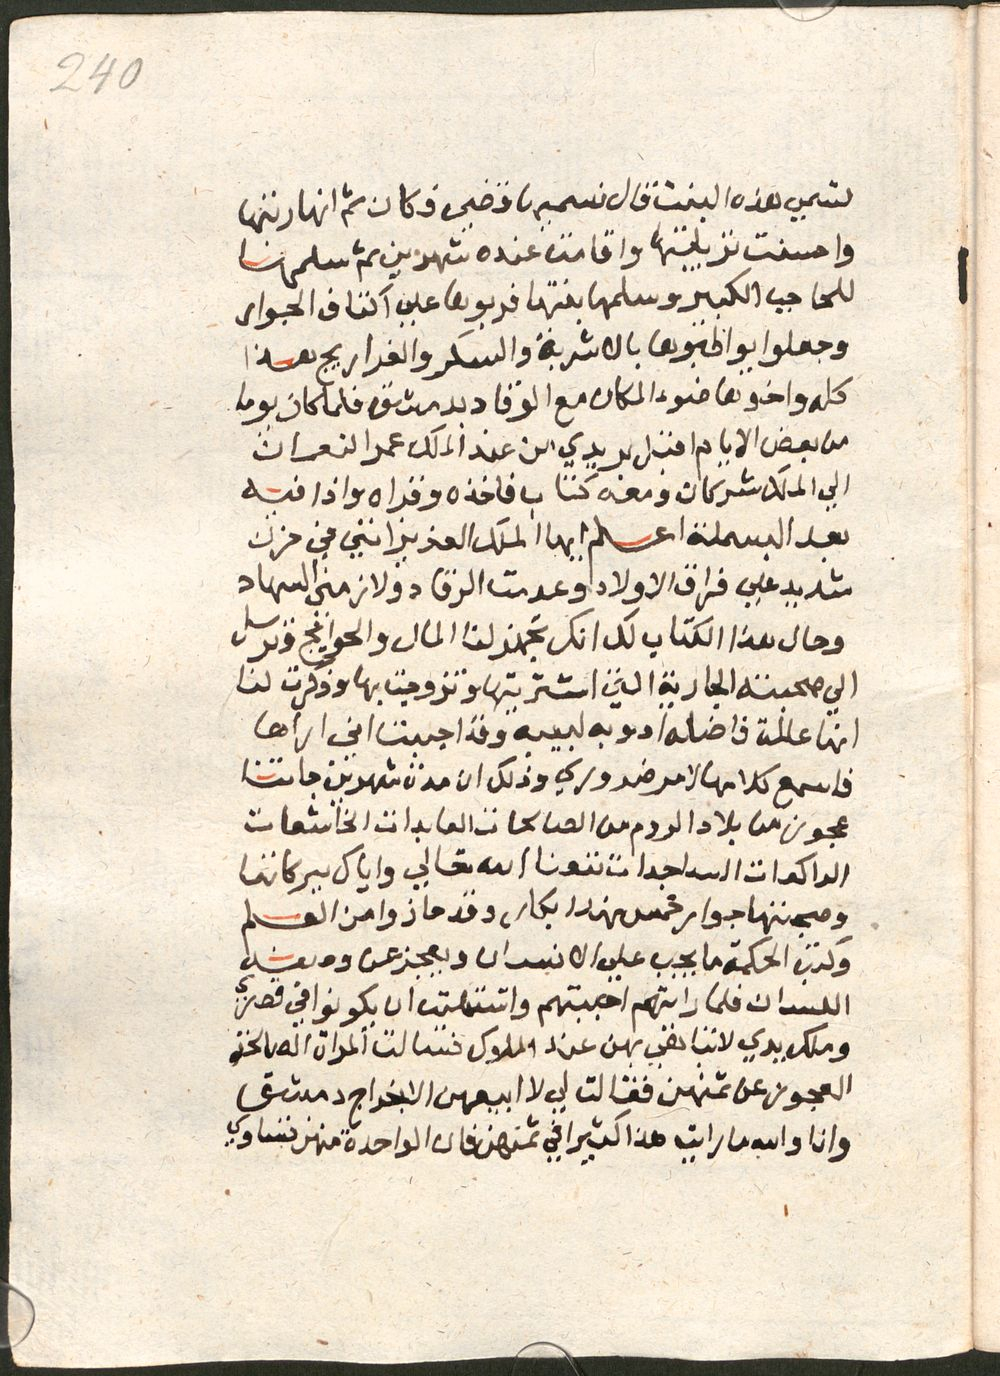 240
تسمي هذه البنت قال نسميها قضي فكان ثم انها ربتها
واحسنت تربيتها واقامت عنده شهرين ثم سلمها
للحاجب الكبير وسلمها بنتها فربوها علي اكتاف الجوار
وجعلوا يواظبوها بالاشربة والسكر والفراريج هذا
كله واخوها ضوء المكان مع الوقاد بدمشق فلما كان يوما
من بعض الايام اقبل بريدي من عند الملك عمر النعمان
الي الملك شركان ومعه كتاب فاخذه وقراه واذا فيه
بعد البسملة اعلم ايها الملك العزيز انني في حزن
شديد علي فراق الاولاد وعدمت الرقاد ولازمني السهاد
وحال هذا الكتاب لك انك تجهز لنا المال والحوايج وترسل
الي صحبته الجارية التي اشتريتها وتزوجت بها وذكرت لنا
انها عالمة فاضله اديبه لبيبه وقد احببت اني اراها
فاسمع كلامها لامر ضروري وذلك ان مدة شهرين جاتنا
عجوز من بلاد الروم من الصالحات العابدات الخاشعات
الراكعات الساجدات نفعنا الله تعالي واياك ببركاتها
وصحبتها جوار خمس نهدا بكار وقد حازوا من العلم
وكثرة الحكمة ما يجب علي الانسان ويعجز عن وصفه
اللسان فلما رايتهم احببتهم واشتهيت ان يكونوا في قصري
وملك يدي لاننا نفي بهن عند الملوك فسالت المراة الصالحة
العجوز عن ثمنهن فقالت لي لا ابيعهن الا بخراج دمشق
وانا والله ما رايت هذا كثيرا في ثمنهن فان الواحدة منهن تساوي